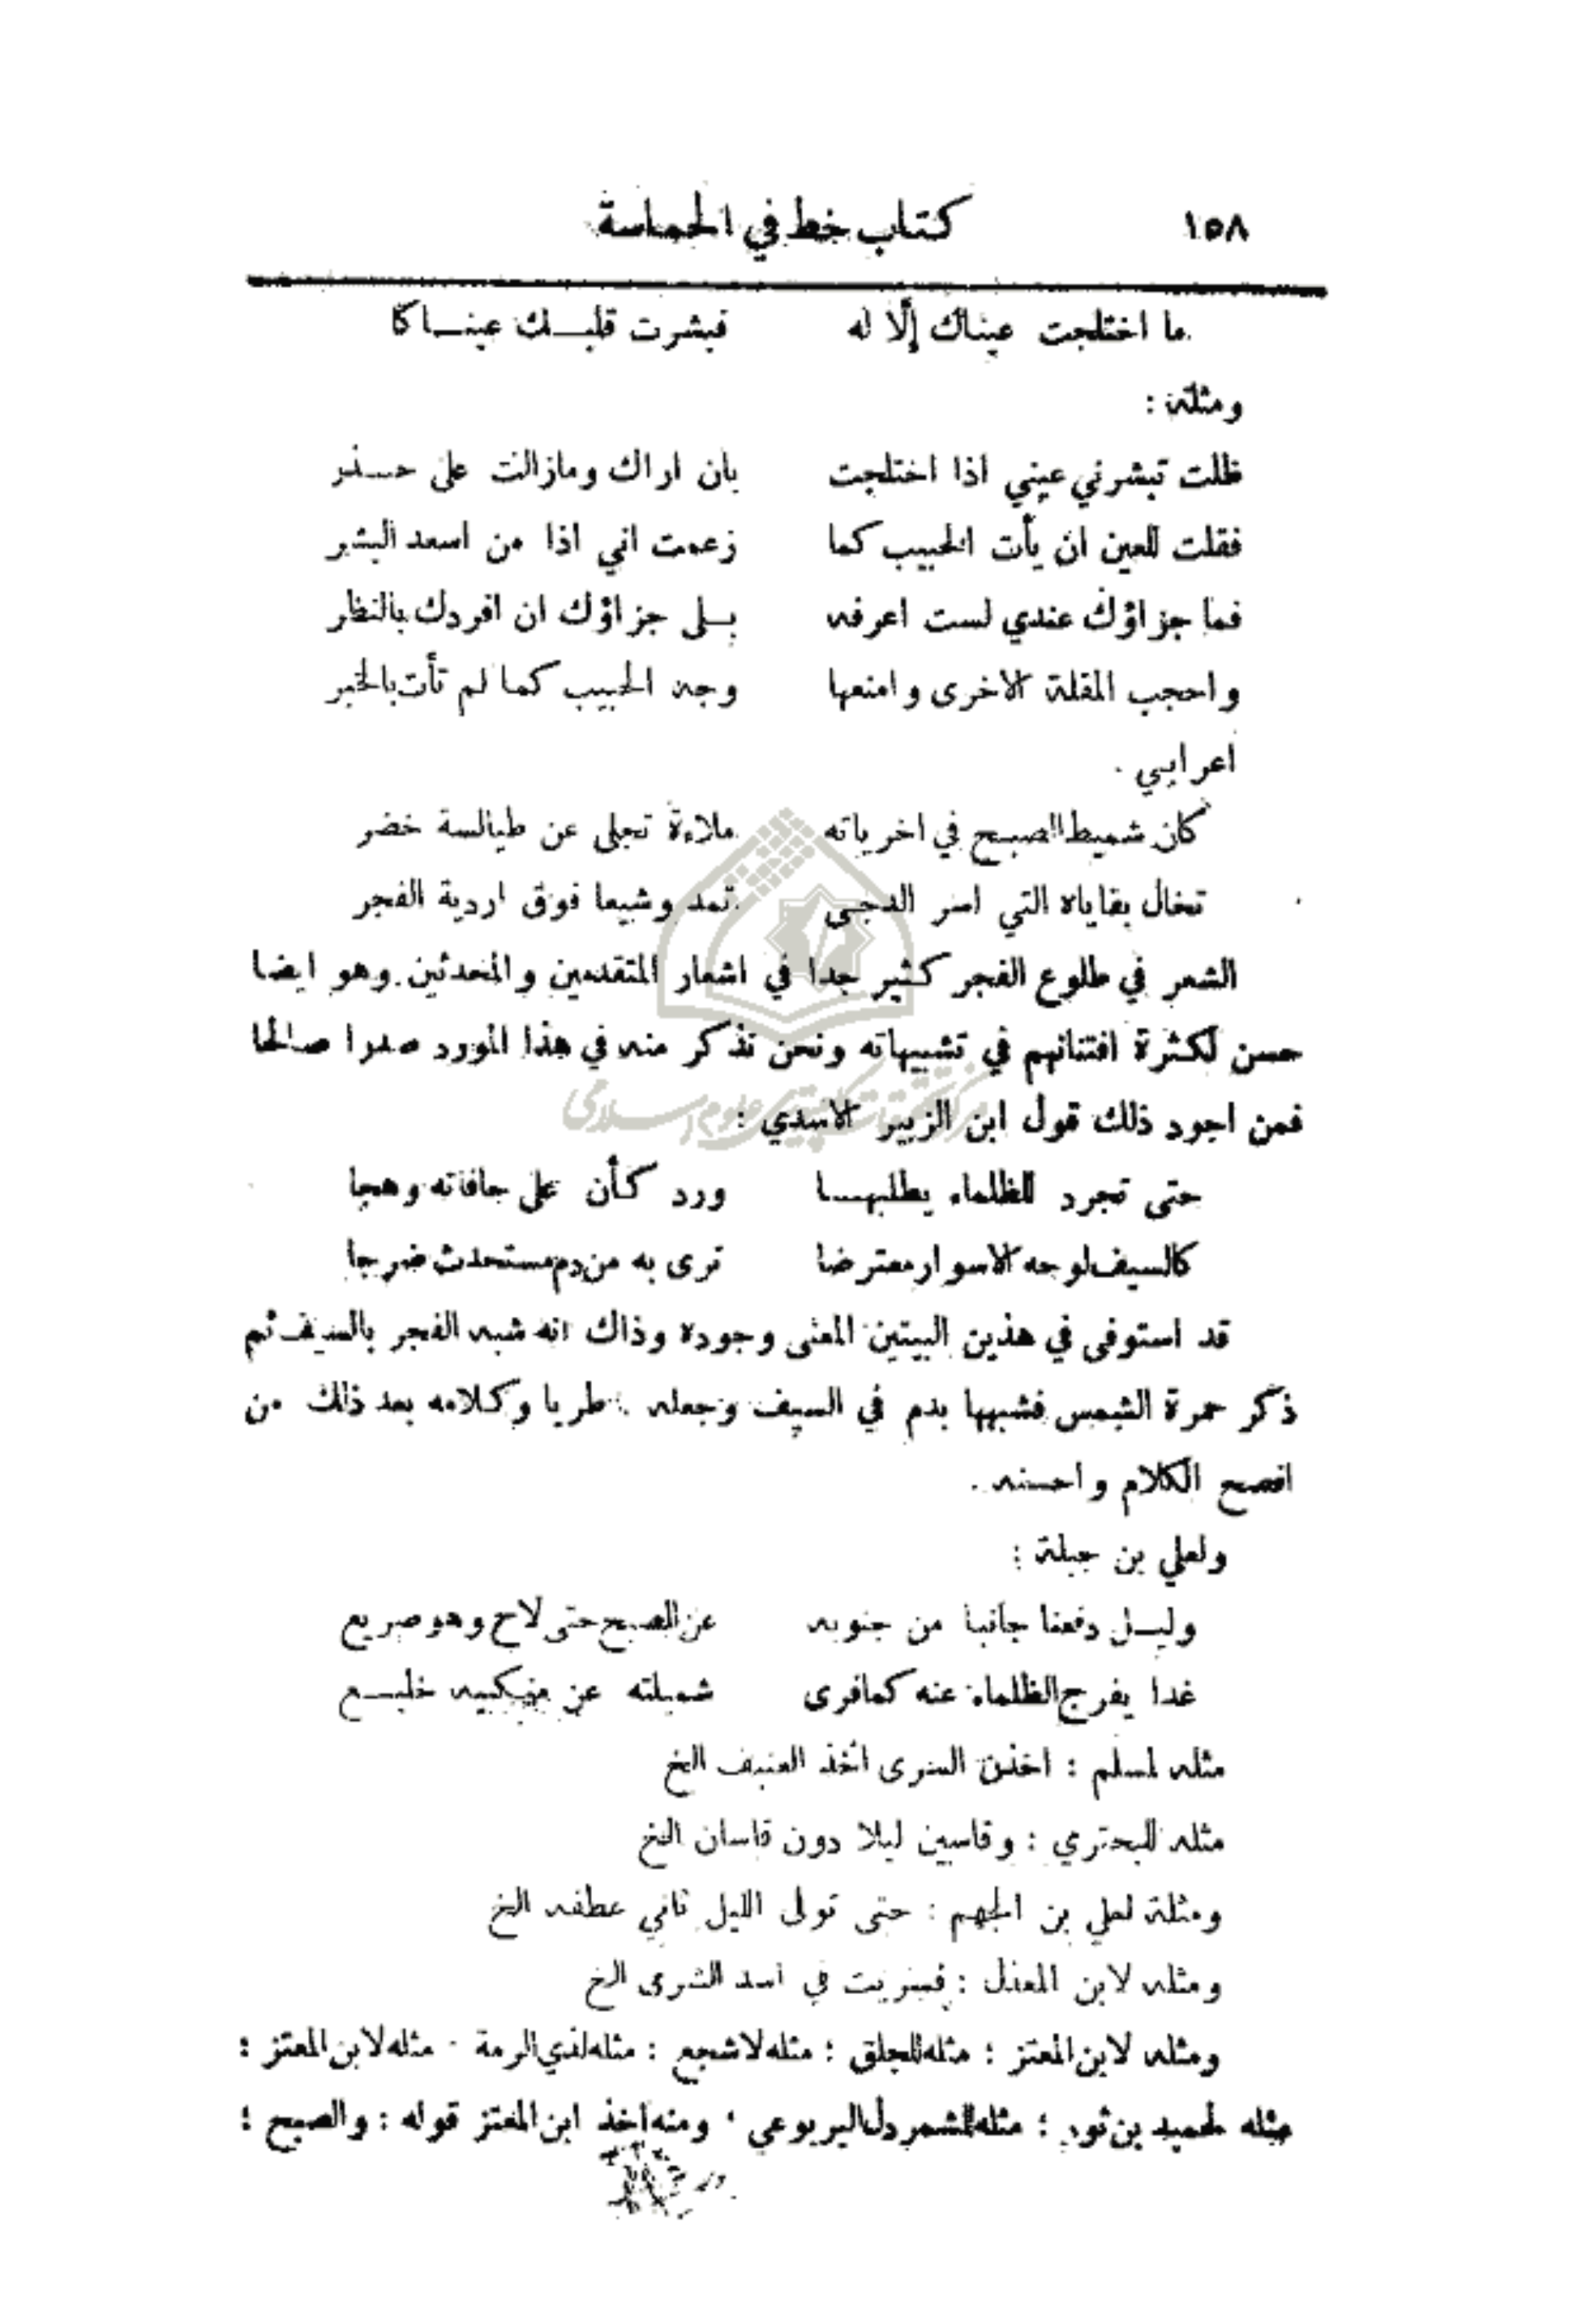 ١٥٨ كتاب خط في الحماسة
ما اختلجت عيناك إلّا له فبشرت قلبـــك عينـــاكا
ومثله :
ظلت تبشرني عيني اذا اختلجت بان اراك ومازالت على حـــذر
فقلت للعين ان يأت الحبيب كما زعمت اني اذا من اسعد البشر
فما جزاؤك عندي لست اعرفه بـلى جزاؤك ان افردك بالنظر
واحجب المقلة الاخرى وامنعها وجه الحبيب كما لم تأت بالخبر
اعرابي .
كان شميط الصبح في اخرياته ملاءة تجلى عن طيالسة خضر
تخال بقاياه التي اسر الدجى تمد وشيعا فوق اردية الفجر
الشعر في طلوع الفجر كثير جدا في اشعار المتقدمين والمحدثين وهو ايضا
حسن لكثرة افتنانهم في تشبيهاته ونحن نذكر منه في هذا المورد صدرا صالحا
فمن اجود ذلك قول ابن الزبير الاسدي :
حتى تجرد للظلماء يطلبهـــا ورد كأن على حافاته وهجا
كالسيف لوحه الاسوار معترضا ترى به من دم مستحدث ضرجا
قد استوفى في هذين البيتين المعنى وجوده وذاك انه شبه الفجر بالسيف ثم
ذكر حمرة الشمس فشبهها بدم في السيف وجعله طريا وكلامه بعد ذلك من
افصح الكلام واحسنه .
ولعلي بن جبلة :
وليـــل دفعنا جانبا من جنوبه عن الصبح حتى لاح وهو صريع
غدا يفرج الظلماء عنه كما فرى شميلته عن منكبيه خليـــع
مثله لمسلم : اخذن السرى اخذ العنيف الخ
مثله للبحتري : وقاسين ليلا دون قاسان الخ
ومثله لعلي بن الجهم : حتى تولى الليل ثاني عطفه الخ
ومثله لابن المعذل : فسريت في اسد الشرى الخ
ومثله لابن المعتز : مثله للحلق : مثله لاشجع : مثله لذي الرمة . مثله لابن المعتز :
مثله لحميد بن ثور : مثله للشمردل اليربوعي ' ومنه اخذ ابن المعتز قوله : والصبح :
مركز تحقيقات كامپيوتری علوم اسلامی